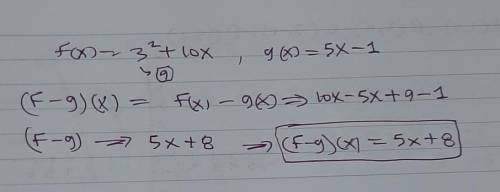 f(x) = 3² + 10x , g(x) = 5x - 1
↳ 9
(f-g)(x) = f(x) - g(x) ⇒ 10x - 5x + 9 - 1
(f-g) → 5x + 8 ⇒ (f-g)(x) = 5x + 8